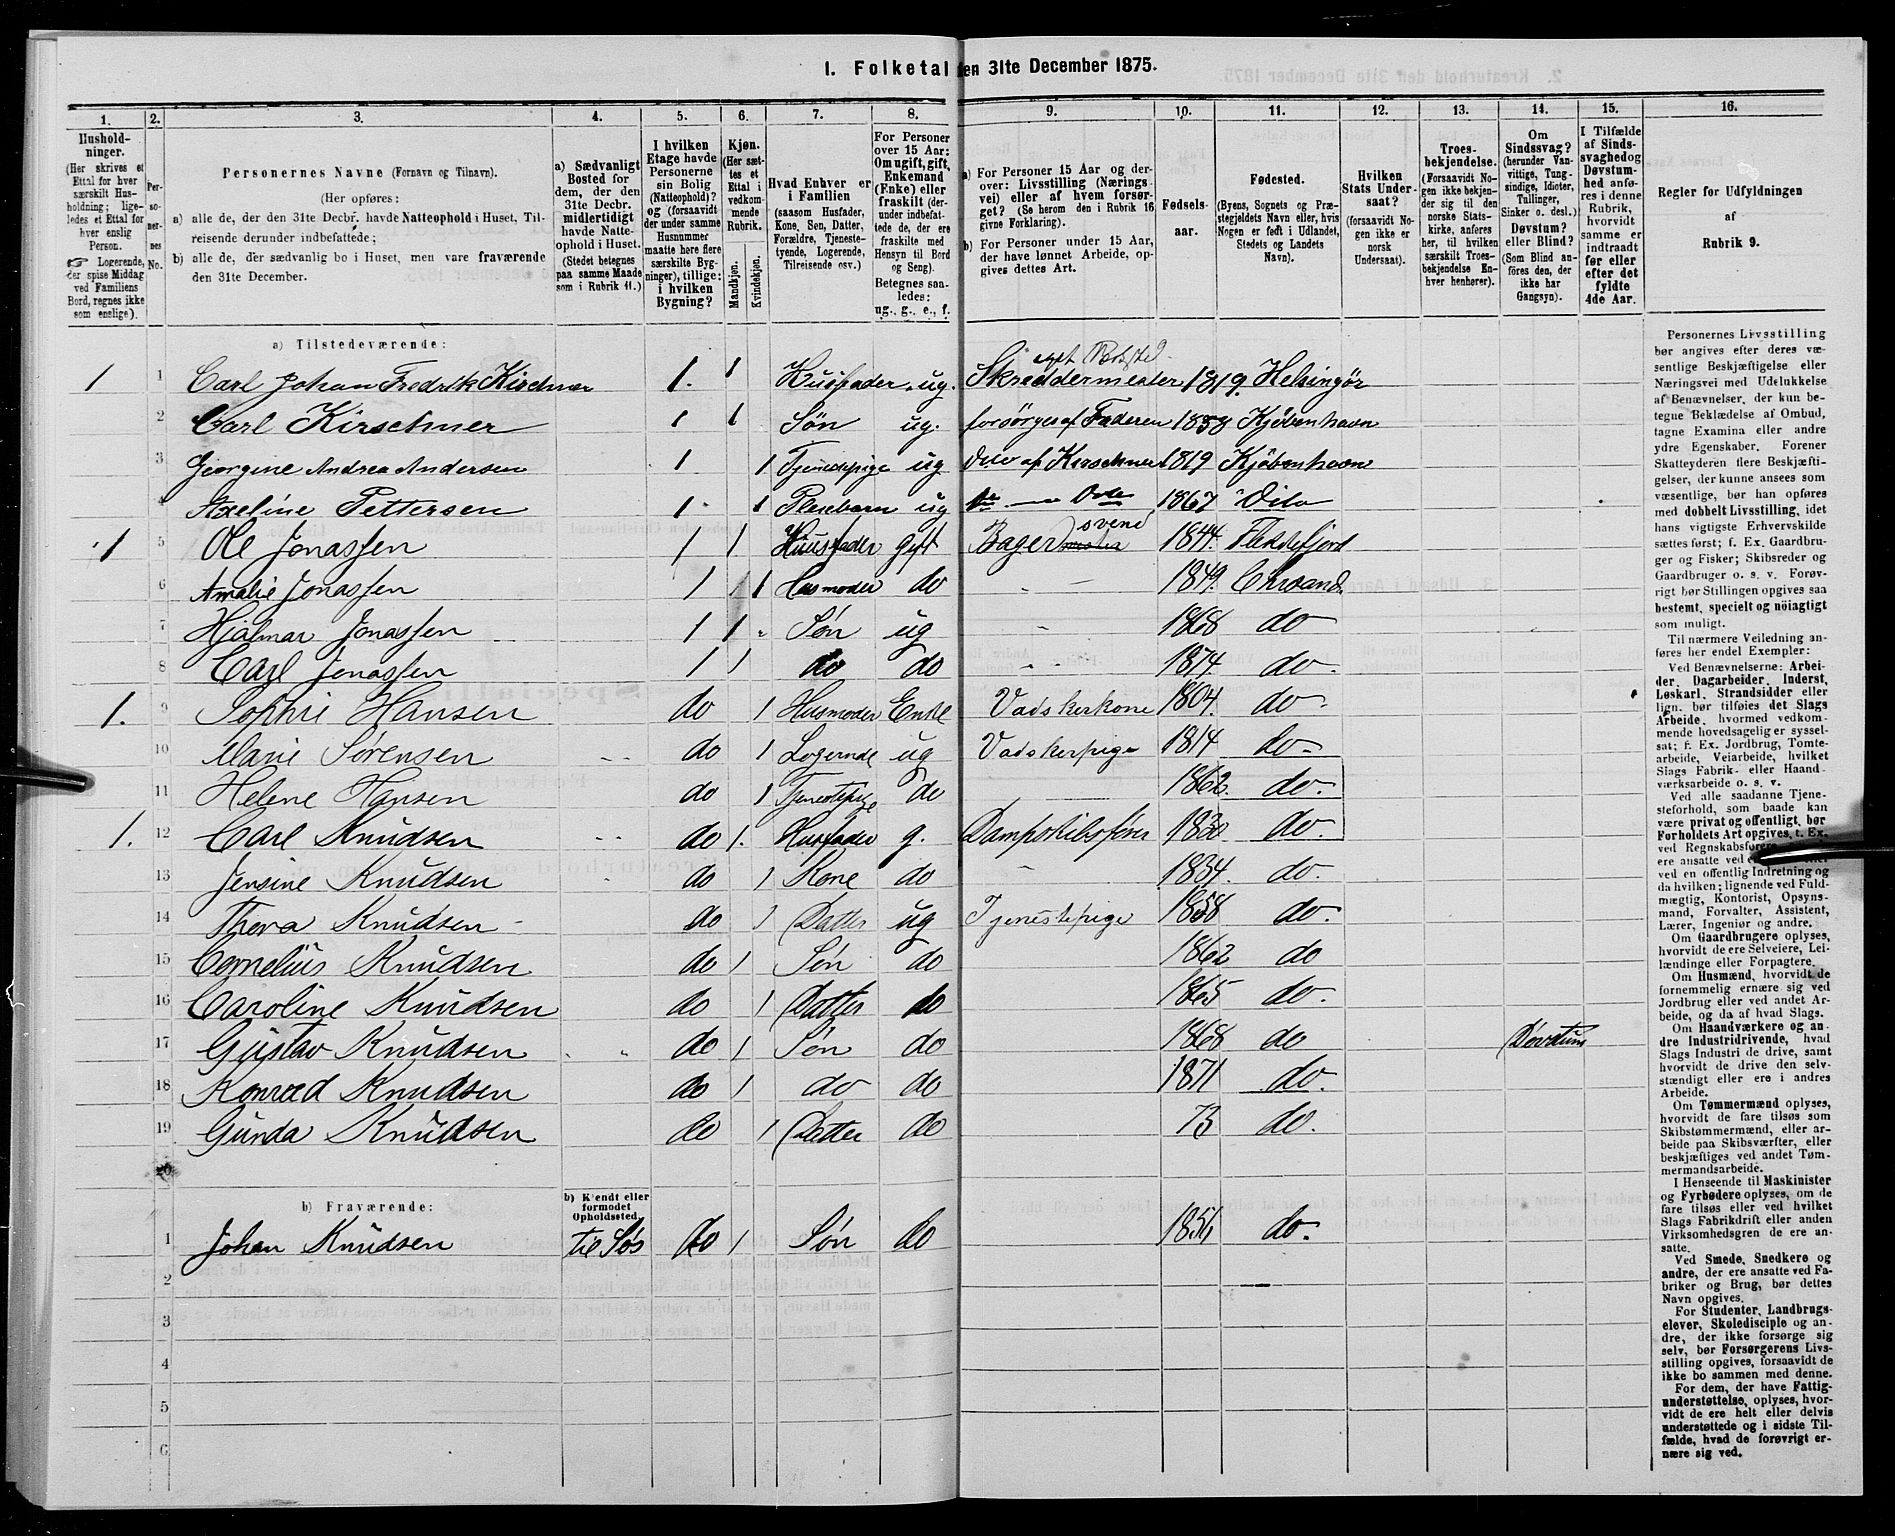 I. Folketal den 31te December 1875.
1. 2. 3. 4. 5. 6. 7. 8. 9. 10. 11. 12. 13. 14. 15. 16.
Husholdninger. (Her skrives et Ettal for hver særskilt Husholdning; ligeledes et Ettal for hver enslig Person. Logerende, der spise Middag ved Familiens Bord, regnes ikke som enslige).
Personernes No.
Personernes Navne (Fornavn og Tilnavn).
(Her opføres:
a) alle de, der den 31te Decbr. havde Natteophold i Huset, Tilreisende derunder indbefattede;
b) alle de, der sædvanlig bo i Huset, men vare fraværende den 31te December.
a) Sædvanligt Bosted for dem, der den 31te Decbr. midlertidigt havde Natteophold i Huset. (Stedet betegnes paa samme Maade som i Rubrik 11.)
I hvilken Etage havde Personerne sin Bolig (Natteophold)? og (forsaavidt der under samme Husnummer maatte høre flere særskilte Bygninger), tillige: i hvilken Bygning?
Kjøn. (Her sættes et Ettal i vedkommende Rubrik.
Mandkjøn. Kvindekjøn.
Hvad Enhver er i Familien (saasom Husfader, Kone, Søn, Datter, Forældre, Tjenestetyende, Logerende, Tilreisende osv.)
For Personer over 15 Aar: Om ugift, gift, Enkemand (Enke) eller fraskilt (derunder indbefattede de, der ere fraskilte med Hensyn til Bord og Seng). Betegnes saaledes: ug., g., e., f.
a) For Personer 15 Aar og derover: Livsstilling (Næringsvei) eller af hvem forsørget? (Se herom den i Rubrik 16 givne Forklaring).
b) For Personer under 15 Aar, der have lønnet Arbeide, opgives dettes Art.
Fødselsaar.
Fødested. (Byens, Sognets og Præstegjeldets Navn eller, hvis Nogen er født i Udlandet, Stedets og Landets Navn).
Hvilken Stats Undersaat? (forsaavidt Nogen ikke er norsk Undersaat).
Troesbekjendelse. (Forsaavidt Nogen ikke bekjender sig til den norske Statskirke, anføres her, til hvilken særskilt Troesbekjendelse Enhver henhører).
Om Sindssvag? (herunder Vanvittige, Tungsindige, Idioter, Tullinger, Sinker o. desl.) Døvstum? eller Blind? (Som Blind anføres den, der ikke har Gangsyn).
I Tilfælde af Sindssvaghed og Døvstumhed anføres i denne Rubrik, hvorvidt samme er indtraadt før eller efter det fyldte 4de Aar.
Regler for Udfyldningen af Rubrik 9.
a) Tilstedeværende:
eget Bosted
1 1 Carl Johan Fredrik Kirschner 1. 1 Husfader ug. Skreddermester 1819 Helsingör
2 Carl Kirschner 1 1 Søn ug. forsörges af Faderen 1858 Kjöbenhavn
3 Georgine Andrea Andersen 1 1 Tjenestepige ug do af Kirschner 1819 Kjöbenhavn
4 Axeline Pettersen 1 1 Pleiebarn ug 1867 Dito
svend
1 5 Ole Jonassen 1 1 Huusfader gift Bager 1844. Flekkefjord
6 Amalie Jonassen 1 1 Husmoder do 1849. Chrsand.
7 Hjalmar Jonassen 1 1 Søn ug 1868 do
8 Carl Jonassen 1 1 do do 1874. do
1. 9 Sophie Hansen do 1 Husmoder Enke Vadskerkone 1804. do
10 Marie Sørensen do 1 Logernde ug Vadskerpige 1814 do
11 Helene Hansen do 1 Tjenestepige do 1862. do.
1. 12 Carl Knudsen do 1. Husfader g. Dampskibsfører 1830 do.
13 Jensine Knudsen do 1 Kone do 1834. do.
14 Thora Knudsen do 1 Datter ug Tjenestepige 1858 do.
15 Cornelius Knudsen do 1 Søn do 1862 do
16 Caroline Knudsen do 1 Datter do 1865 do.
17 Gustav Knudsen do 1 Søn do 1868 do Døvstum
18 Konrad Knudsen do 1 do do 1871 do.
19 Gunda Knudsen do 1 Datter do 73 do.
20
b) Fraværende:
b) Kjendt eller formodet Opholdssted.
1 Johan Knudsen til Søs do 1 Søn do 1856 do.
2
3
4
5
6
Personernes Livsstilling bør angives efter deres væsentlige Beskjæftigelse eller Næringsvei med Udelukkelse af Benævnelser, der kun betegne Beklædelse af Ombud, tagne Examina eller andre ydre Egenskaber. Forener Skatteyderen flere Beskjæftigelser, der kunne ansees som væsentlige, bør han opføres med dobbelt Livsstilling, idet hans vigtigste Erhvervskilde sættes først; f. Ex. Gaardbruger og Fisker; Skibsreder og Gaardbruger o. s. v. Forøvrigt bør Stillingen opgives saa bestemt, specielt og nöiagtigt som muligt.
Til nærmere Veiledning anføres her endel Exempler:
Ved Benævnelserne: Arbeider, Dagarbeider, Inderst, Løskarl, Strandsidder eller lign. bør tilføies det Slags Arbeide, hvormed vedkommende hovedsagelig er sysselsat; f. Ex. Jordbrug, Tomtearbeide, Veiarbeide, hvilket Slags Fabrik- eller Haandværksarbeide o. s. v.
Ved alle saadanne Tjenesteforhold, som baade kan være privat og offentligt, bør Forholdets Art opgives, t. Ex. ved Regnskabsførere ere ansatte ved ved en offentlig Indretning og da hvilken; lignende ved Fuldmægtig, Kontorist, Opsynsmand, Forvalter, Assistent, Lærer, Ingeniør og andre.
Om Gaardbrugere oplyses, hvorvidt de ere Selveiere, Leilændinge eller Forpagtere.
Om Husmænd, hvorvidt de fornemmelig ernære sig ved Jordbrug eller ved andet Arbeide, og da af hvad Slags.
Om Haandværkere og andre Industridrivende, hvad Slags Industri de drive, samt hvorvidt de drive den selvstændigt eller ere i andres Arbeide.
Om Tømmermænd oplyses, hvorvidt de fare tilsøs som Skibstømmermænd, eller arbeide paa Skibsværfter, eller beskjæftiges ved andet Tømmermandsarbeide.
I Henseende til Maskinister og Fyrbødere oplyses, om de fare tilsøs eller ved hvilket Slags Fabrikdrift eller anden Virksomhedsgren de ere ansatte.
Ved Smede, Snedkere og andre, der ere ansatte ved Fabriker og Brug, bør dettes Navn opgives.
For Studenter, Landbrugselever, Skoledisciple og andre, der ikke forsørge sig selv, bør Forsørgerens Livsstilling opgives, forsaavidt de ikke bo sammen med denne.
For dem, der have Fattigunderstøttelse, oplyses, hvorvidt de ere helt eller delvis understøttede og i sidste Tilfælde, hvad de forøvrigt ernære sig ved.